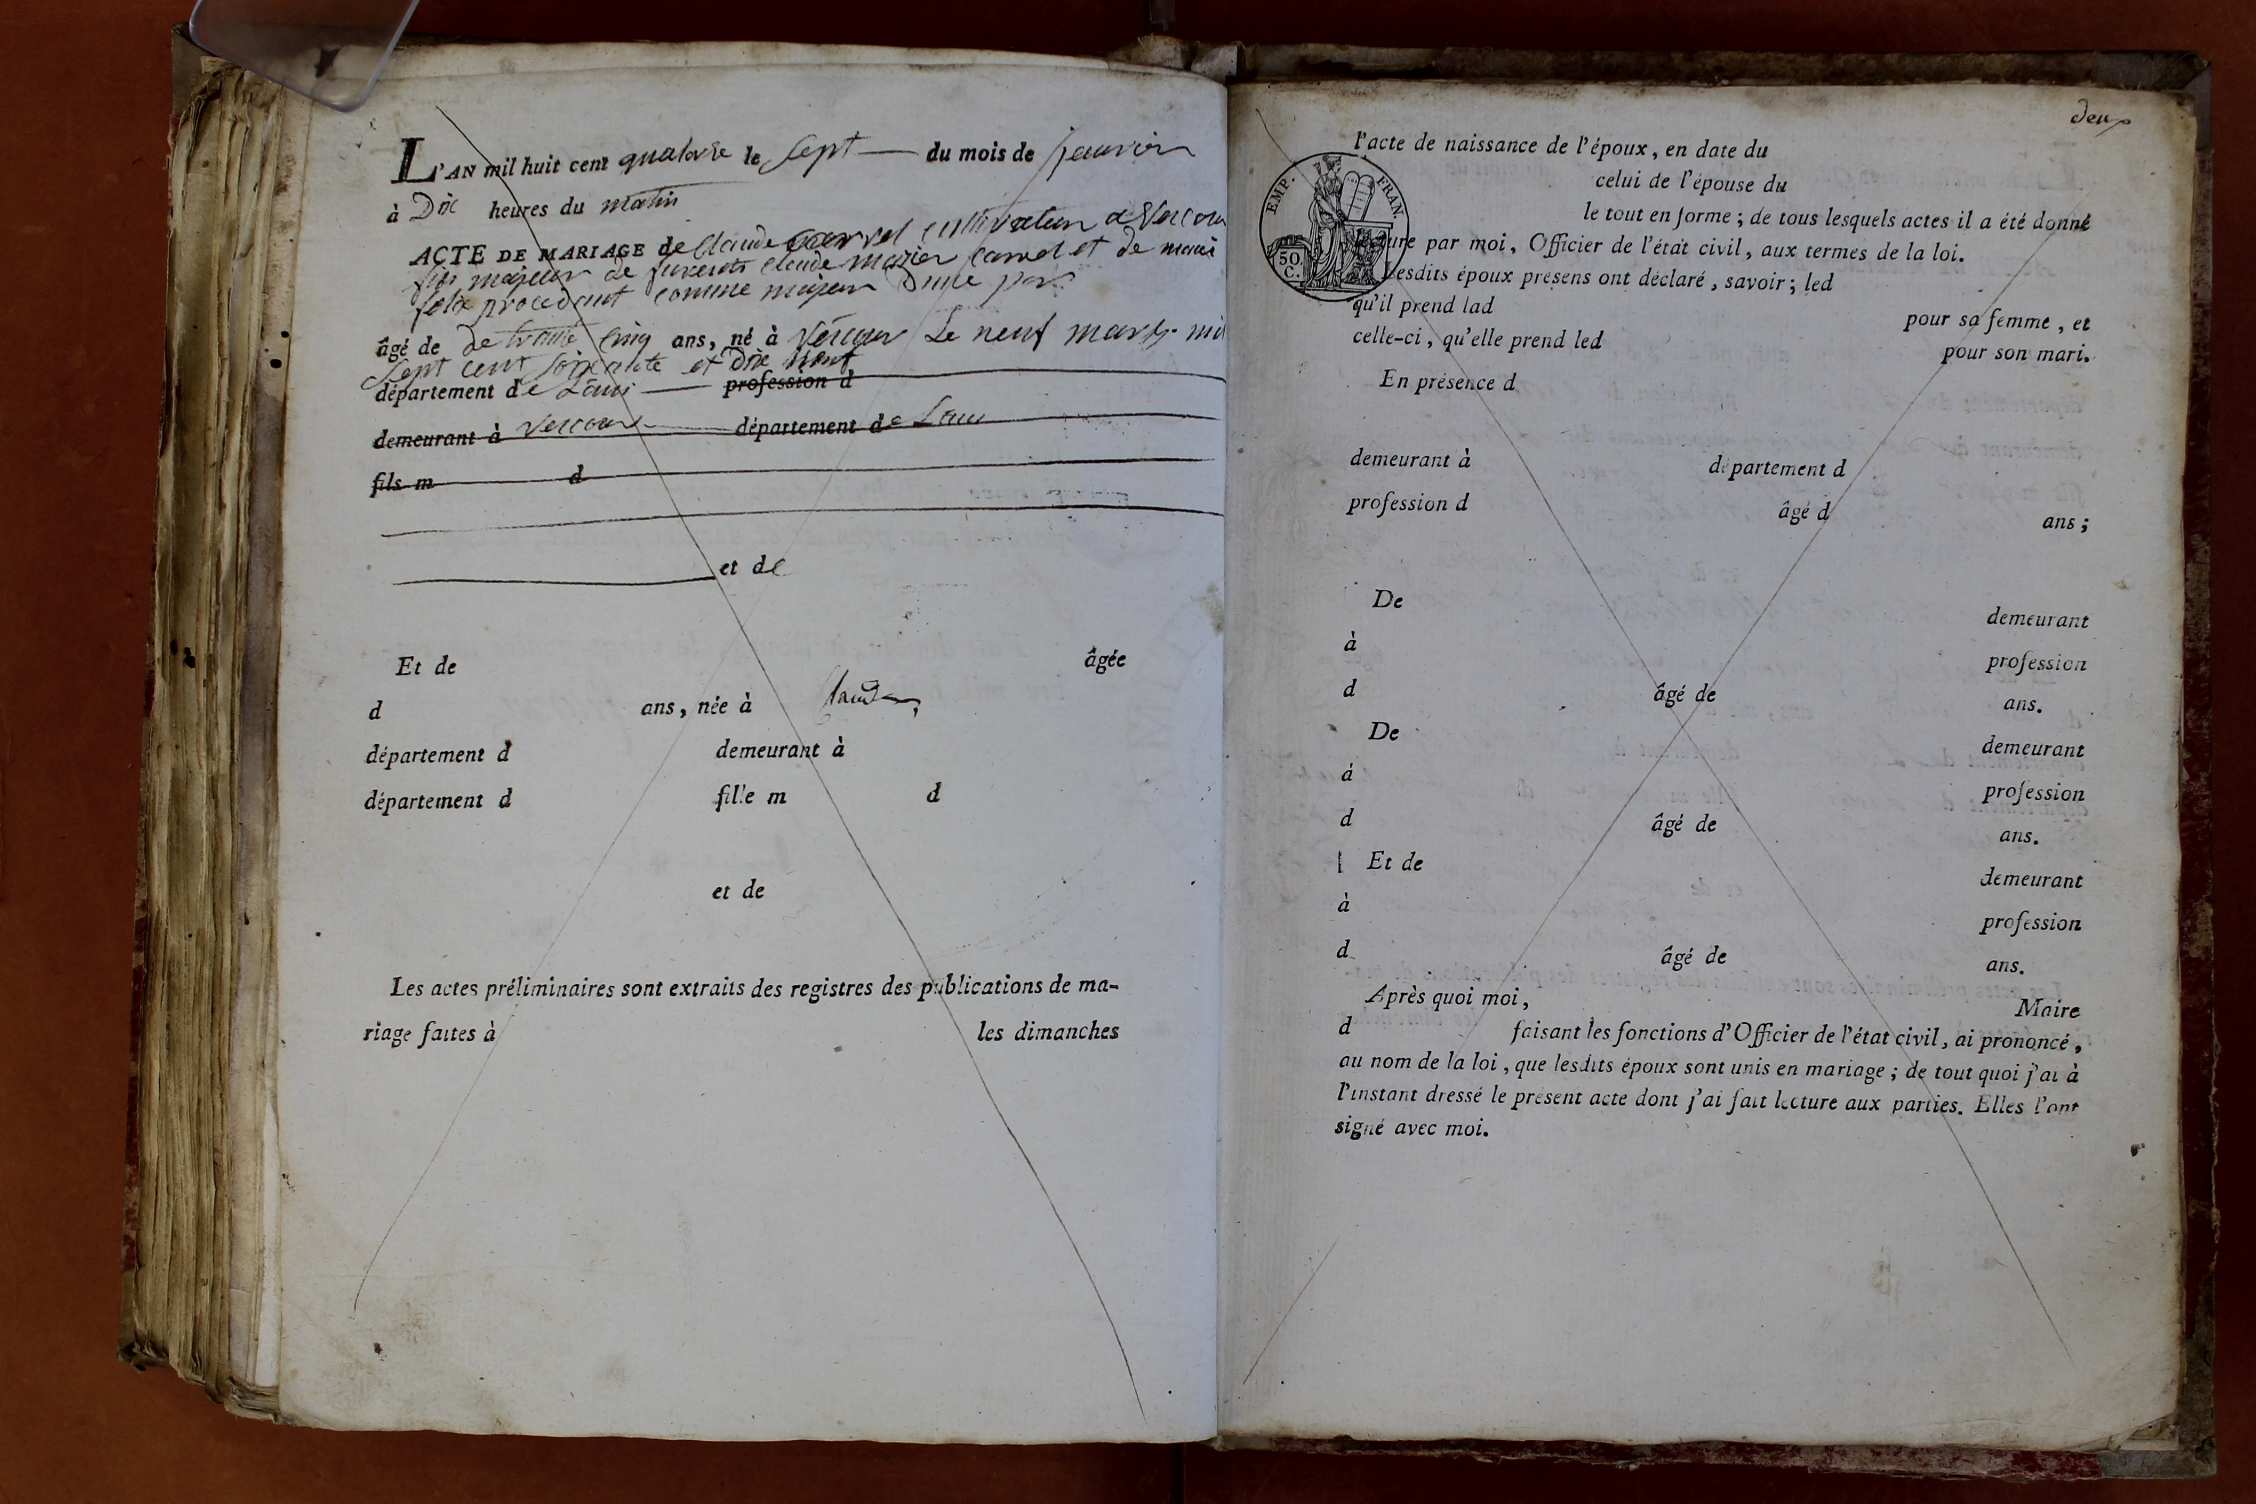 L'AN mil huit cent quatorze le Sept du mois de janvier
à Dix heures du matin
ACTE DE MARIAGE de Claude Carrel cultivateur a
fils majeur de Claude Carrel et de marie
felix procedant comme majeur D'une part
âgé de de trente Cinq ans, né à Vercour Le neuf mars mil
Sept cent Soixante et Dix Neuf
département de Lain profession d
demeurant à Vercour département de Lain
fils m d
et de
Et de âgée
d ans, née à Claude
département d demeurant à
département d fille m d
et de
Les actes préliminaires sont extraits des registres des publications de ma-
riage faites à les dimanches
deux
l'acte de naissance de l'époux, en date du
celui de l'épouse du
le tout en forme; de tous lesquels actes il a été donné
lecture par moi, Officier de l'état civil, aux termes de la loi.
Lesdits époux présens ont déclaré, savoir; led
qu'il prend lad pour sa femme, et
celle-ci, qu'elle prend led pour son mari.
En présence d
demeurant à département d
profession d âgé d ans;
De demeurant
à profession
d âgé de ans.
De demeurant
à profession
d âgé de ans.
Et de demeurant
à profession
d âgé de ans.
Après quoi moi, Maire
d faisant les fonctions d'Officier de l'état civil, ai prononcé,
au nom de la loi, que lesdits époux sont unis en mariage; de tout quoi j'ai à
l'instant dressé le présent acte dont j'ai fait lecture aux parties. Elles l'ont
signé avec moi.
EMP. FRAN.
50
C.